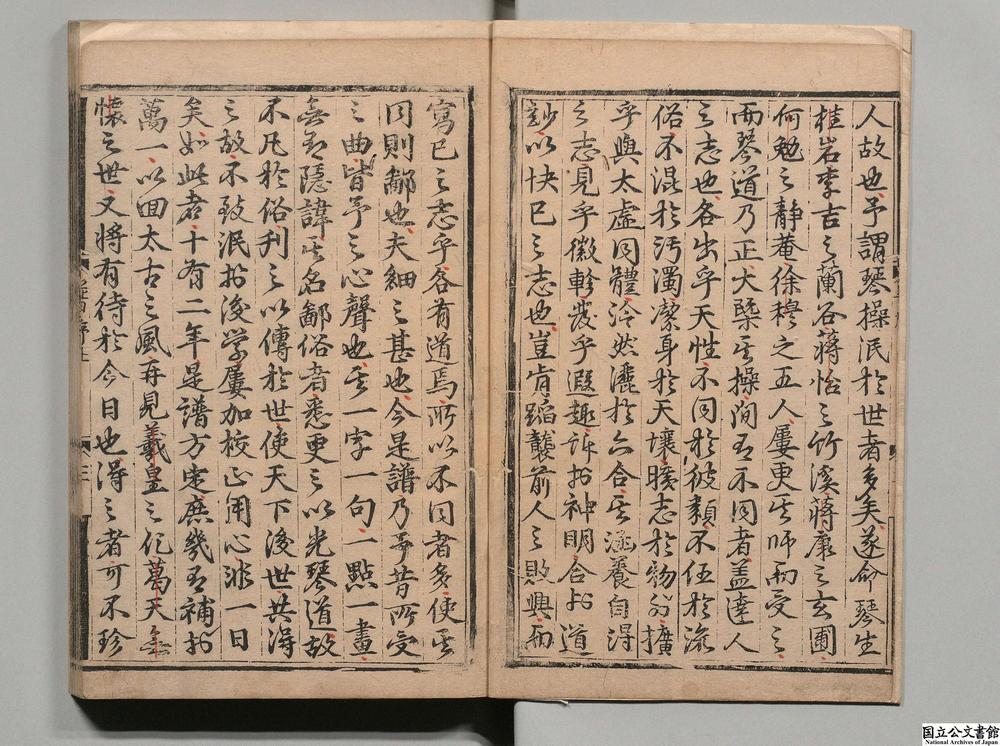 人故也予謂琴操泯於世者多矣遂命琴生
桂岩李吉之蘭谷蔣怡之竹溪蔣康之玄圃
何勉之靜菴徐穆之五人屢更其師而受之
而琴道乃正大槩其操間有不同者盖達人
之志也各出乎天性不同於彼類不伍於流
俗不混於汚濁潔身於天壤曠志於物外擴
乎與太虛同體泠然灑於六合其涵養自得
之志見乎徽軫發乎遐趣訴於神明合於道
妙以快已之志也豈肯蹈襲前人之敗興而
寫已之志乎各有道焉所以不同者多使其
同則鄙也夫細之甚也今是譜乃予昔所受
之曲皆予之心聲也其一字一句一點一畫
無有隱諱其名鄙俗者悉更之以光琴道故
不凡於俗刊之以傳於世使天下後世共得
之故不致泯於後學屢加校正用心非一日
矣如此者十有二年是譜方定庶幾有補於
萬一以回太古之風再見羲皇之化萬天無
懷之世又將有待於今日也得之者可不珍
三
国立公文書館
National Archives of Japan